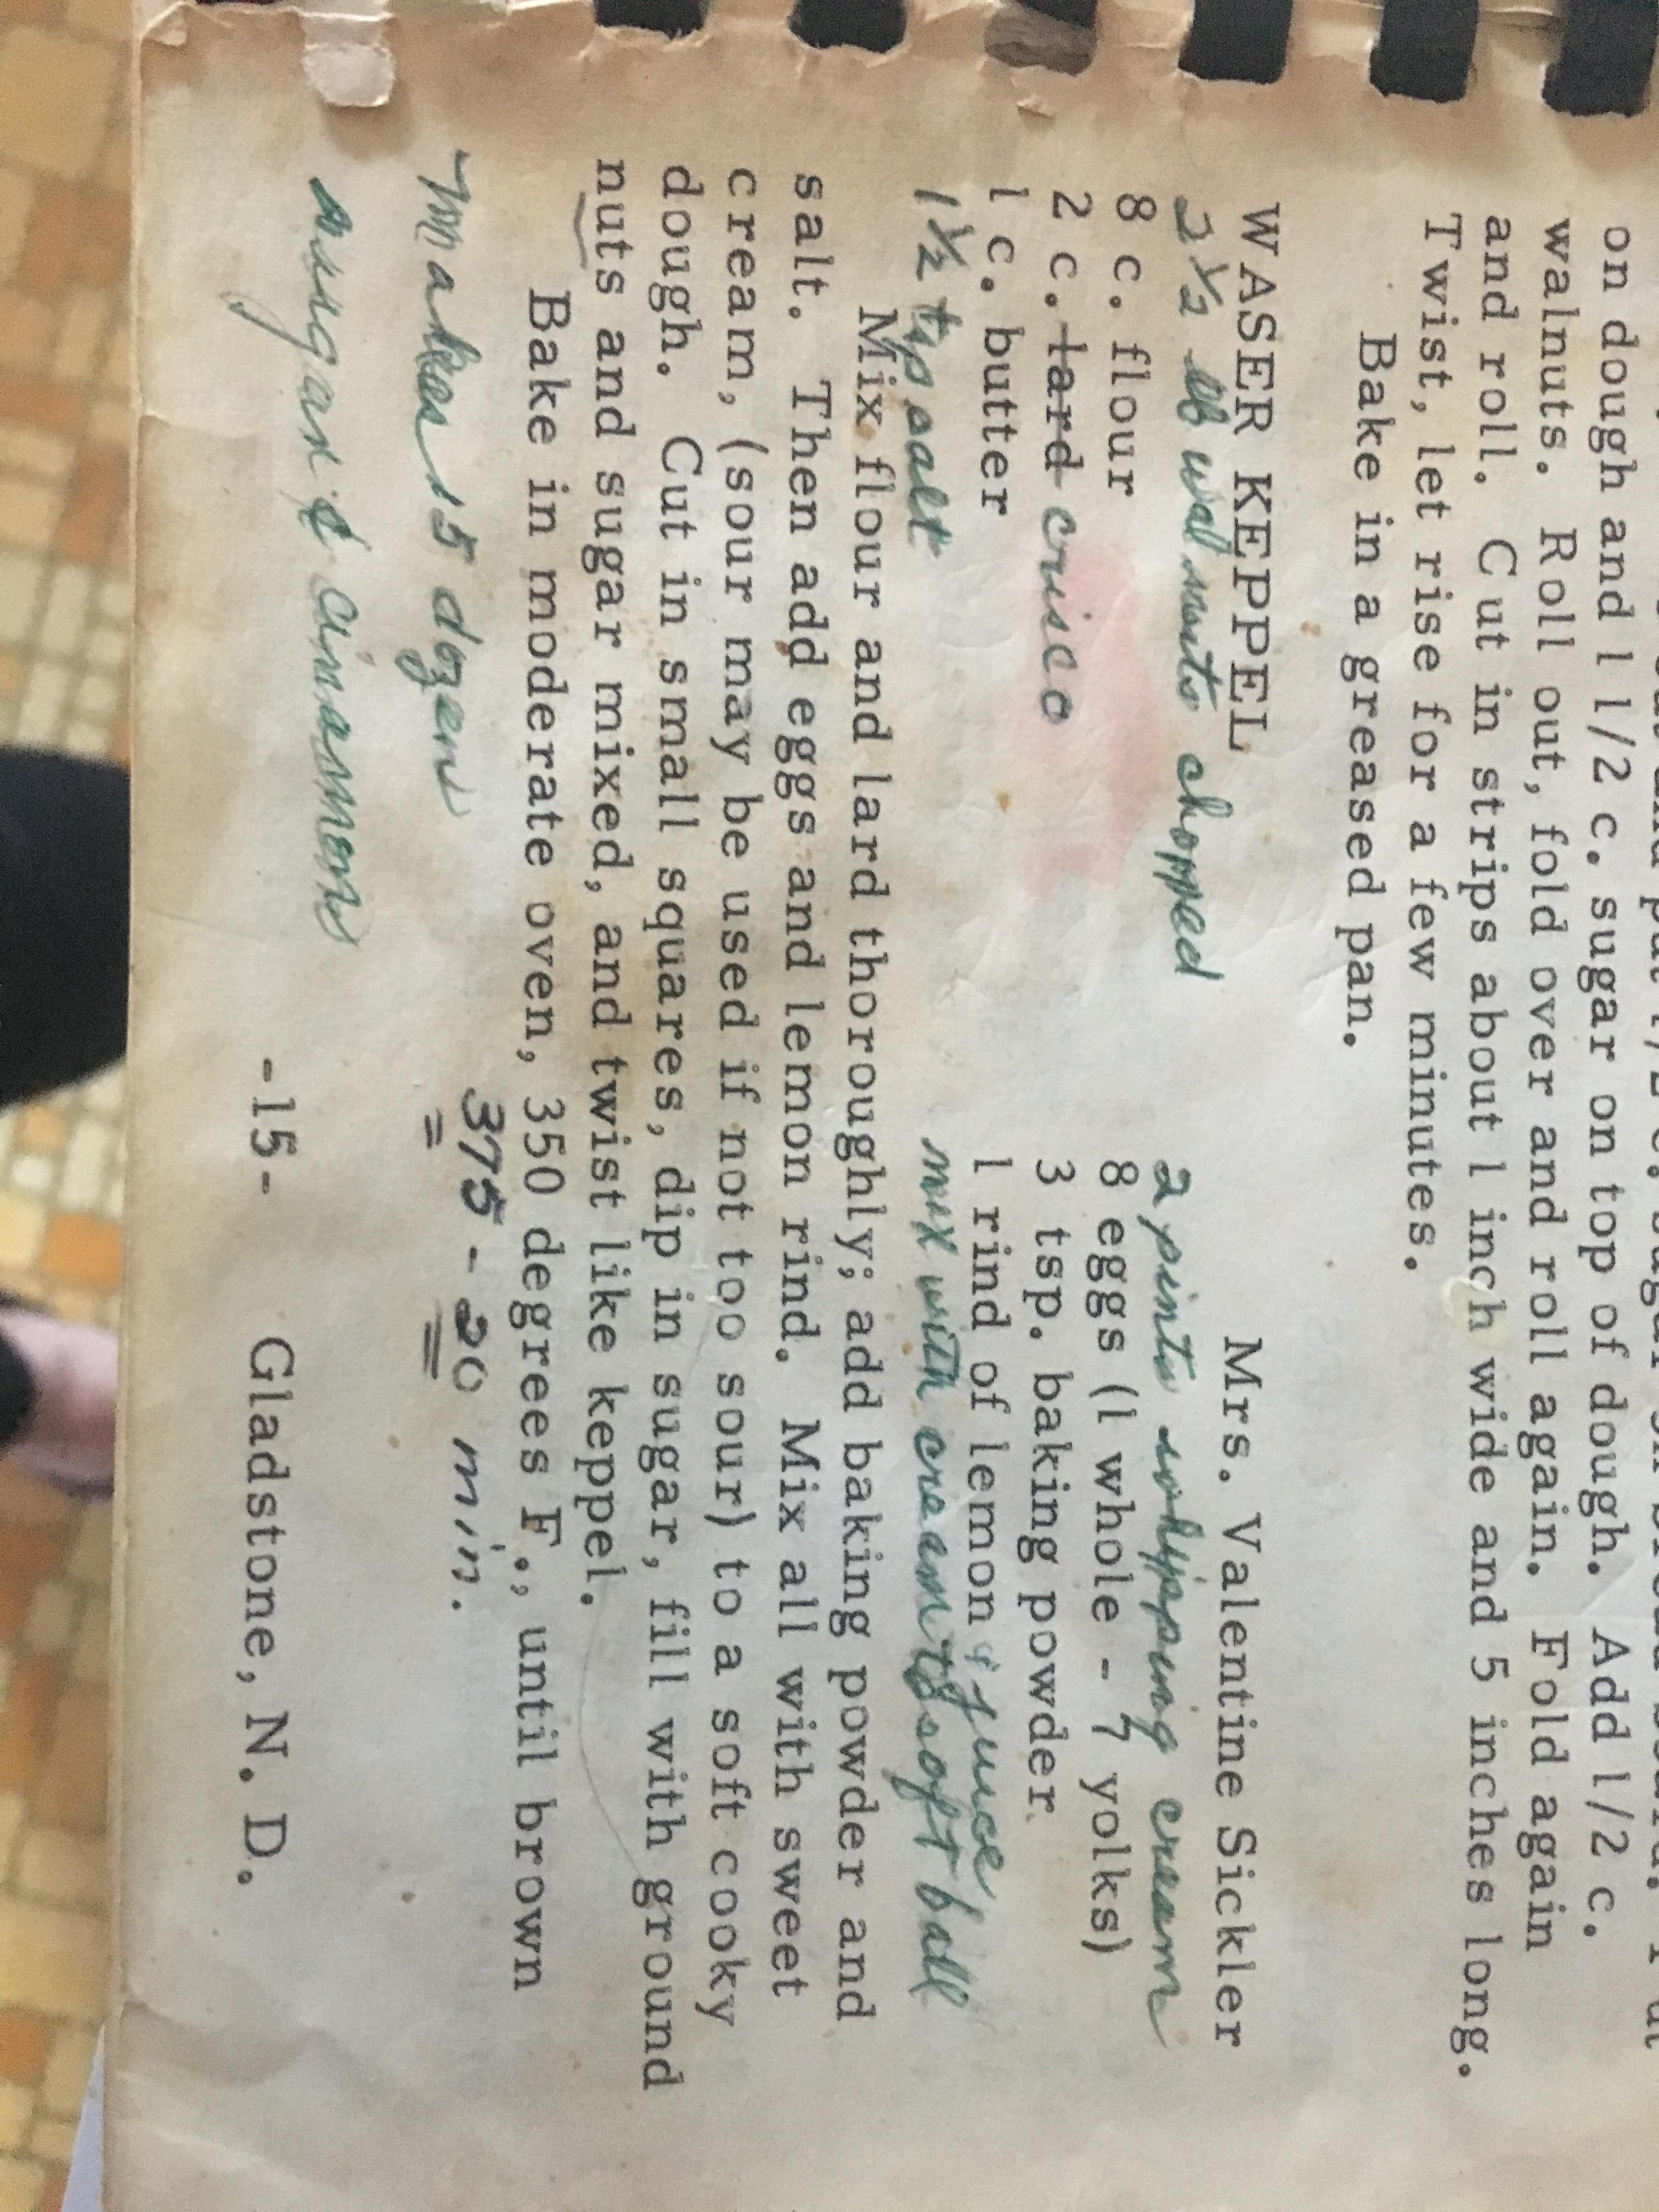 on dough and 1 1/2 c. sugar on top of dough. Add 1/2 c.
walnuts. Roll out, fold over and roll again. Fold again
and roll. Cut in strips about 1 inch wide and 5 inches long.
Twist, let rise for a few minutes.
Bake in a greased pan.
WASER KEPPEL Mrs. Valentine Sickler
2 1/2 lb walnuts chopped 2 pints whipping cream
8 c. flour 8 eggs (1 whole - 7 yolks)
2 c. lard crisco 3 tsp. baking powder
1 c. butter 1 rind of lemon & juice
1 1/2 tsp salt mix with cream to soft ball
Mix flour and lard thoroughly; add baking powder and
salt. Then add eggs and lemon rind. Mix all with sweet
cream, (sour may be used if not too sour) to a soft cooky
dough. Cut in small squares, dip in sugar, fill with ground
nuts and sugar mixed, and twist like keppel.
Bake in moderate oven, 350 degrees F., until brown
makes 15 dozens 375 - 20 min.
sugar & cinnamon
-15- Gladstone, N. D.